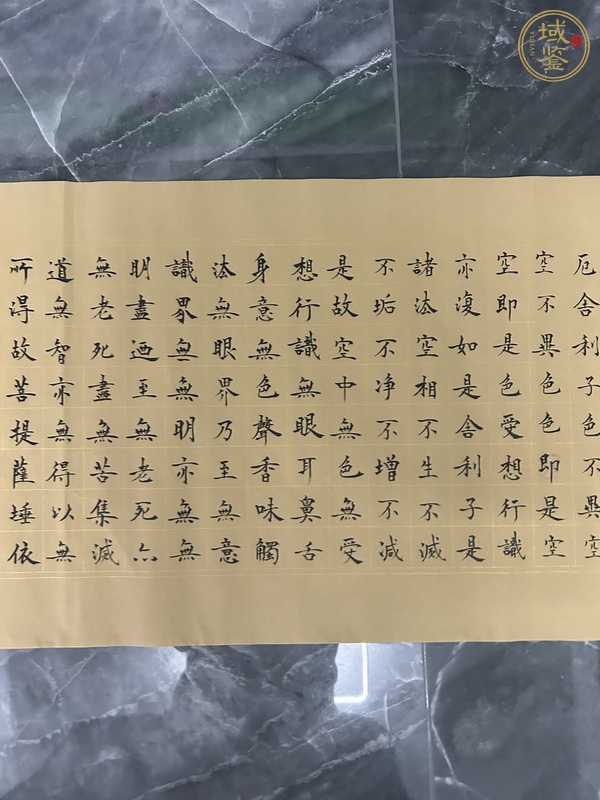 厄舍利子色不異空
空不異色色即是空
空即是色受想行識
亦復如是舍利子是
諸法空相不生不滅
不垢不净不增不減
是故空中無色無受
想行識無眼耳鼻舌
身意無色聲香味觸
法無眼界乃至無意
識界無無明亦無無
明盡迺至無老死亦
無老死盡無苦集滅
道無智亦無得以無
所得故菩提薩埵依
域鉴